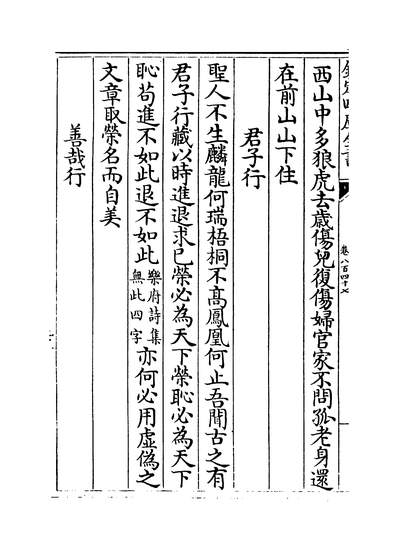 欽定四庫全書
卷八百四十七
西山中多狼虎去歲傷兒復傷婦官家不問孤老身還
在前山山下住
君子行
聖人不生麟龍何瑞梧桐不髙鳳凰何止吾聞古之有
君子行藏以時進退求已榮必為天下榮恥必為天下
恥苟進不如此退不如此樂府詩集無此四字亦何必用虛偽之
文章取榮名而自美
善哉行